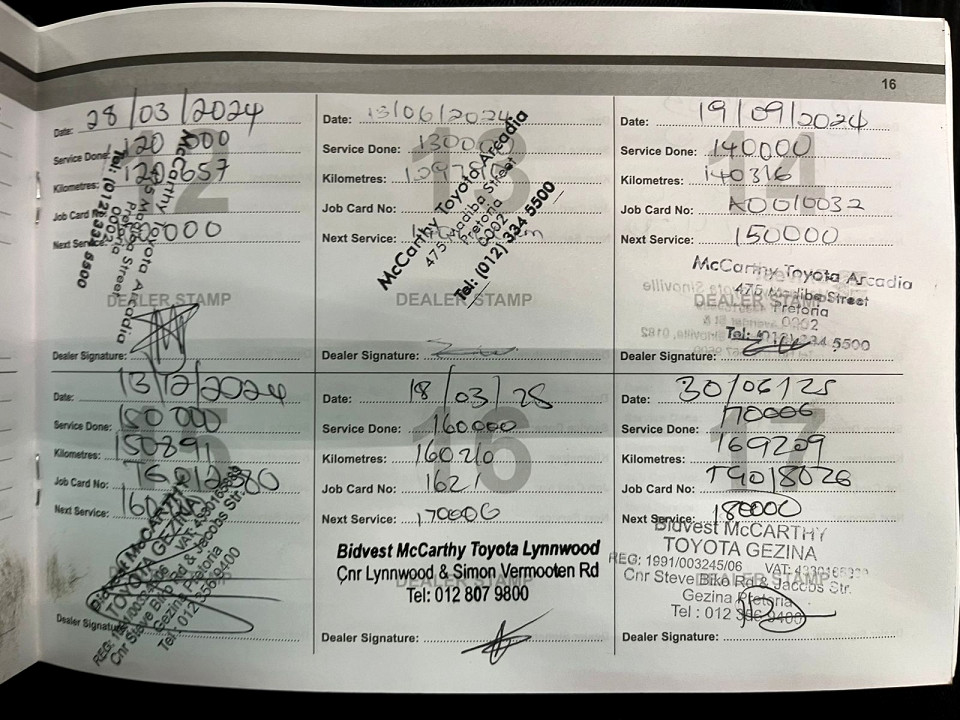 16
Date: 28/03/2024
Service Done: 120 000
Kilometres: 120657
Job Card No:
Next Service:
McCarthy Toyota Arcadia
475 Madiba Street
Pretoria
0002
Tel: (012) 334 5500
DEALER STAMP
Dealer Signature:
13
Date: 13/06/2024
Service Done: 130000
Kilometres:
Job Card No:
Next Service:
McCarthy Toyota Arcadia
475 Madiba Street
Pretoria
0002
Tel: (012) 334 5500
DEALER STAMP
Dealer Signature:
14
Date: 19/09/2024
Service Done: 140000
Kilometres: 140316
Job Card No: A0010032
Next Service: 150000
McCarthy Toyota Arcadia
475 Madiba Street
Pretoria
0002
Tel: (012) 334 5500
DEALER STAMP
Dealer Signature:
Date: 13/12/2024
Service Done: 150 000
Kilometres: 150891
Job Card No:
Next Service:
Bidvest McCARTHY
TOYOTA GEZINA
REG: 1991/003245/06
Cnr Steve Biko Rd & Jacobs Str.
Gezina Pretoria
Dealer Signature:
16
Date: 18/03/25
Service Done: 160000
Kilometres: 160210
Job Card No: 1621
Next Service: 170000
Bidvest McCarthy Toyota Lynnwood
Cnr Lynnwood & Simon Vermooten Rd
DEALER STAMP
Tel: 012 807 9800
Dealer Signature:
17
Date: 30/06/25
Service Done: 170000
Kilometres: 169209
Job Card No:
Next Service: 180000
Bidvest McCARTHY
TOYOTA GEZINA
REG: 1991/003245/06 VAT:
Cnr Steve Biko Rd & Jacobs Str.
DEALER STAMP
Gezina Pretoria
Tel : 012
Dealer Signature: